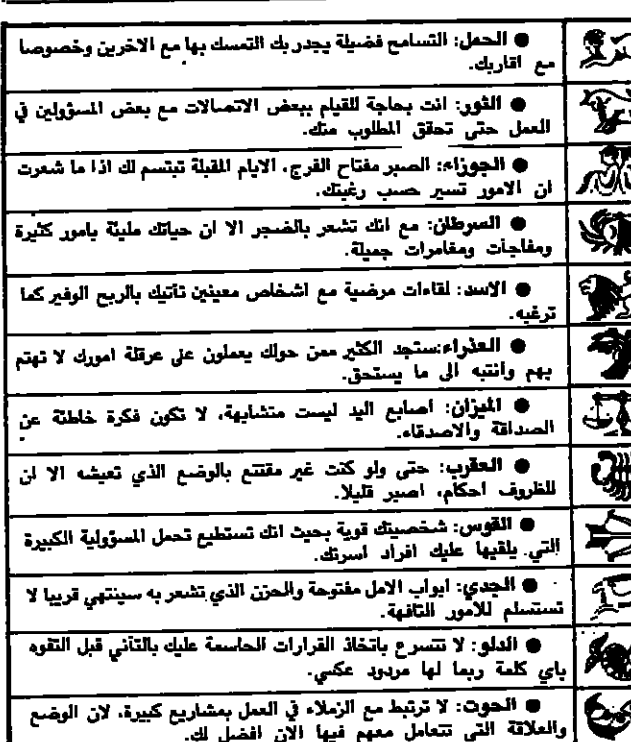 ● الحمل: التسامح فضيلة يجدر بك التمسك بها مع الاخرين وخصوصا
مع اقاربك.
● الثور: انت بحاجة للقيام ببعض الاتصالات مع بعض المسؤولين في
العمل حتى تحقق المطلوب منك.
● الجوزاء: الصبر مفتاح الفرج، الايام المقبلة تبتسم لك اذا ما شعرت
ان الامور تسير حسب رغبتك.
● السرطان: مع انك تشعر بالضجر الا ان حياتك مليئة بامور كثيرة
ومفاجآت ومغامرات جميلة.
● الاسد: لقاءات مرضية مع اشخاص معينين تأتيك بالربح الوفير كما
ترغبه.
● العذراء:ستجد الكثير ممن حولك يعملون على عرقلة امورك لا تهتم
بهم وانتبه الى ما يستحق.
● الميزان: اصابع اليد ليست متشابهة، لا تكون فكرة خاطئة عن
الصداقة والاصدقاء.
● العقرب: حتى ولو كنت غير مقتنع بالوضع الذي تعيشه الا ان
للظروف احكام، اصبر قليلا.
● القوس: شخصيتك قوية بحيث انك تستطيع تحمل المسؤولية الكبيرة
التي يلقيها عليك افراد اسرتك.
● الجدي: ابواب الامل مفتوحة والحزن الذي تشعر به سينتهي قريبا لا
تستسلم للأمور التافهة.
● الدلو: لا تتسرع باتخاذ القرارات الحاسمة عليك بالتأني قبل التفوه
باي كلمة ربما لها مردود عكسي.
● الحوت: لا ترتبط مع الزملاء في العمل بمشاريع كبيرة، لان الوضع
والعلاقة التي تتعامل معهم فيها الان افضل لك.